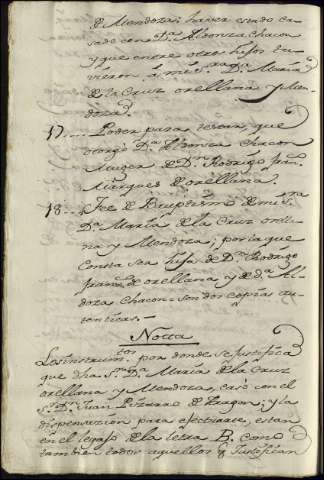 de Mendoza; haver estado ca-
sado con D.ª Aldonza Chacon
y que entre otros hijos tu-
vieron á mi S.ra D.ª Maria
de la Cruz orellana y Men-
doza.
17.... Poder para testar, que
otorgó D.ª Aldonza Chacon
Muger de D.n Rodrigo fran.co
Marques de orellana.
18.... Fee de Bauptismo de mi S.ra
D.ª Maria de la Cruz orella-
na y Mendoza, por la que
Consta sea hija de D.n Rodrigo
fran.co de orellana y de D.ª Al-
donza Chacon = son dos copias au-
tenticas.
Notta
Los instrum.tos por donde se justifica
que dha S.ra D.ª Maria de la Cruz
orellana y Mendoza, casó con el
S.r D.n Juan Pizarro de Aragon; y la
dispensacion para efectuarse, estan
en el legajo de la letra B. como
tambien todos aquellos q Justifican